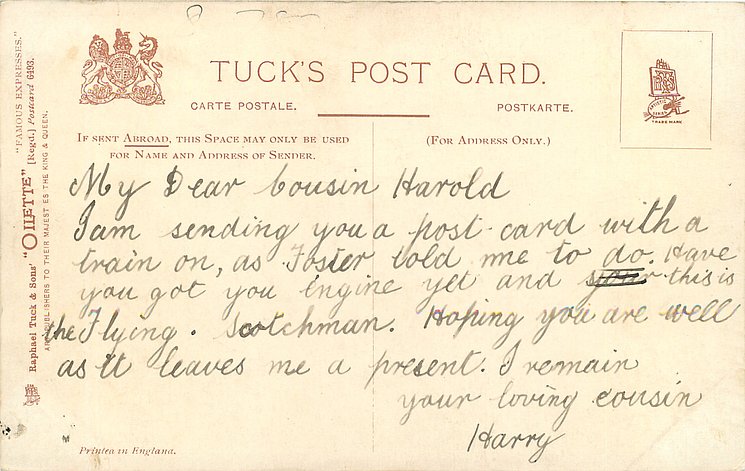 TUCK'S POST CARD.
CARTE POSTALE.
POSTKARTE.
IF SENT ABROAD, THIS SPACE MAY ONLY BE USED
FOR NAME AND ADDRESS OF SENDER.
(FOR ADDRESS ONLY.)
TRADE MARK
My Dear Cousin Harold
I am sending you a post card with a
train on, as Foster told me to do. Have
you got you engine yet and this is
the Flying. Scotchman. Hoping you are well
as it leaves me a present. I remain
your loving cousin
Harry
Printed in England.
"FAMOUS EXPRESSES."
Raphael Tuck & Sons' "OILETTE" [Regd.] Postcard 6493.
ART PUBLISHERS TO THEIR MAJESTIES THE KING & QUEEN.